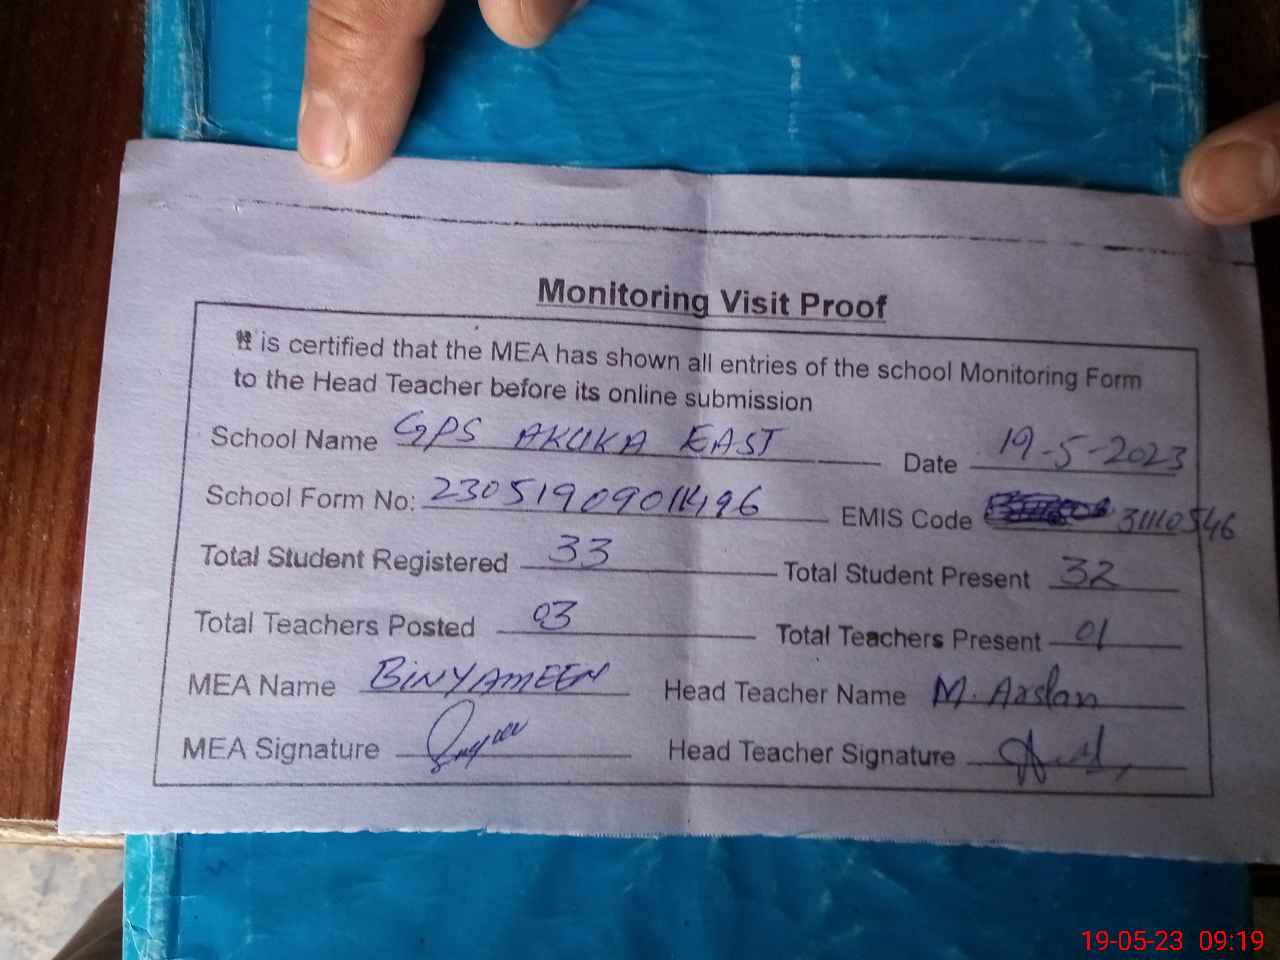 Monitoring Visit Proof
It is certified that the MEA has shown all entries of the school Monitoring Form
to the Head Teacher before its online submission
School Name GPS AKUKA EAST Date 19-5-2023
School Form No: 23051909011496 EMIS Code 31110546
Total Student Registered 33 Total Student Present 32
Total Teachers Posted 03 Total Teachers Present 01
MEA Name BINYAMEEN Head Teacher Name M. Arslan
MEA Signature Head Teacher Signature
19-05-23 09:19